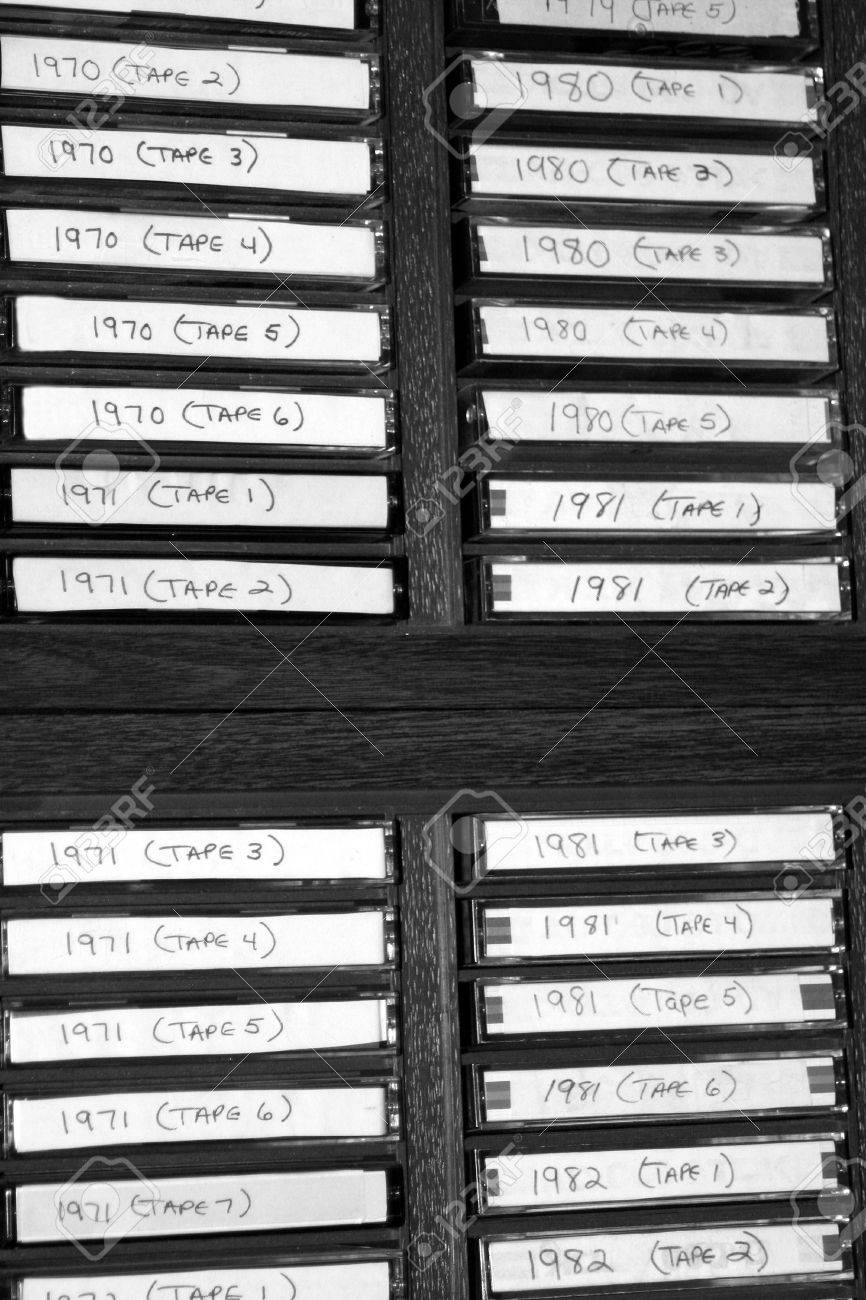 1970 (TAPE 2)
1970 (TAPE 3)
1970 (TAPE 4)
1970 (TAPE 5)
1970 (TAPE 6)
1971 (TAPE 1)
1971 (TAPE 2)
1979 (TAPE 5)
1980 (TAPE 1)
1980 (TAPE 2)
1980 (TAPE 3)
1980 (TAPE 4)
1980 (TAPE 5)
1981 (TAPE 1)
1981 (TAPE 2)
1971 (TAPE 3)
1971 (TAPE 4)
1971 (TAPE 5)
1971 (TAPE 6)
1971 (TAPE 7)
1972 (TAPE 1)
1981 (TAPE 3)
1981 (TAPE 4)
1981 (Tape 5)
1981 (TAPE 6)
1982 (TAPE 1)
1982 (TAPE 2)
123RF